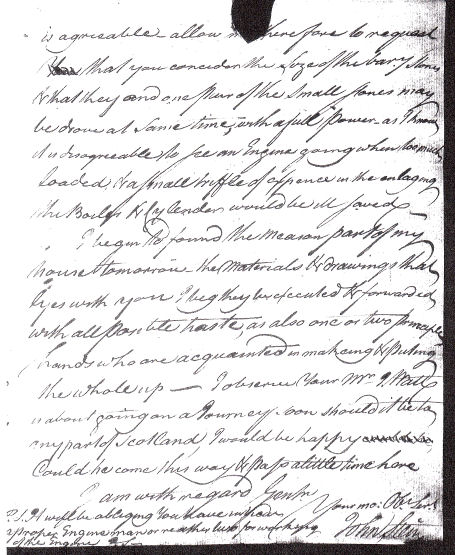 is agreeable allow me therefore to request
that you concider the size of the barr Stones
& that they and one pair of the Small Stones may
be drove at same time, with a full power as I know
it is disagreeable to see an Engine going when too much
loaded, & a small truffle of expence in the enlarging
the Boiler & Cylender would be ill saved
I begin to found the Meason part of my
house tomorrow the materials & drawings that
lyes with you I beg they be executed & forwarded
with all possible haste, as also one or two principle
hands who are acquainted in making & puting
the whole up — I observe Your Mr J Watt
is about going on a Journey soon should it be to
any part of Scotland I would be happy
Could he come this way & pass a little time here
I am with regard Gentn
Your mo: Obt Sert
John Stein
P.S. It will be obliging You have in view
a proper Engine man or reather two for working
of the Engine